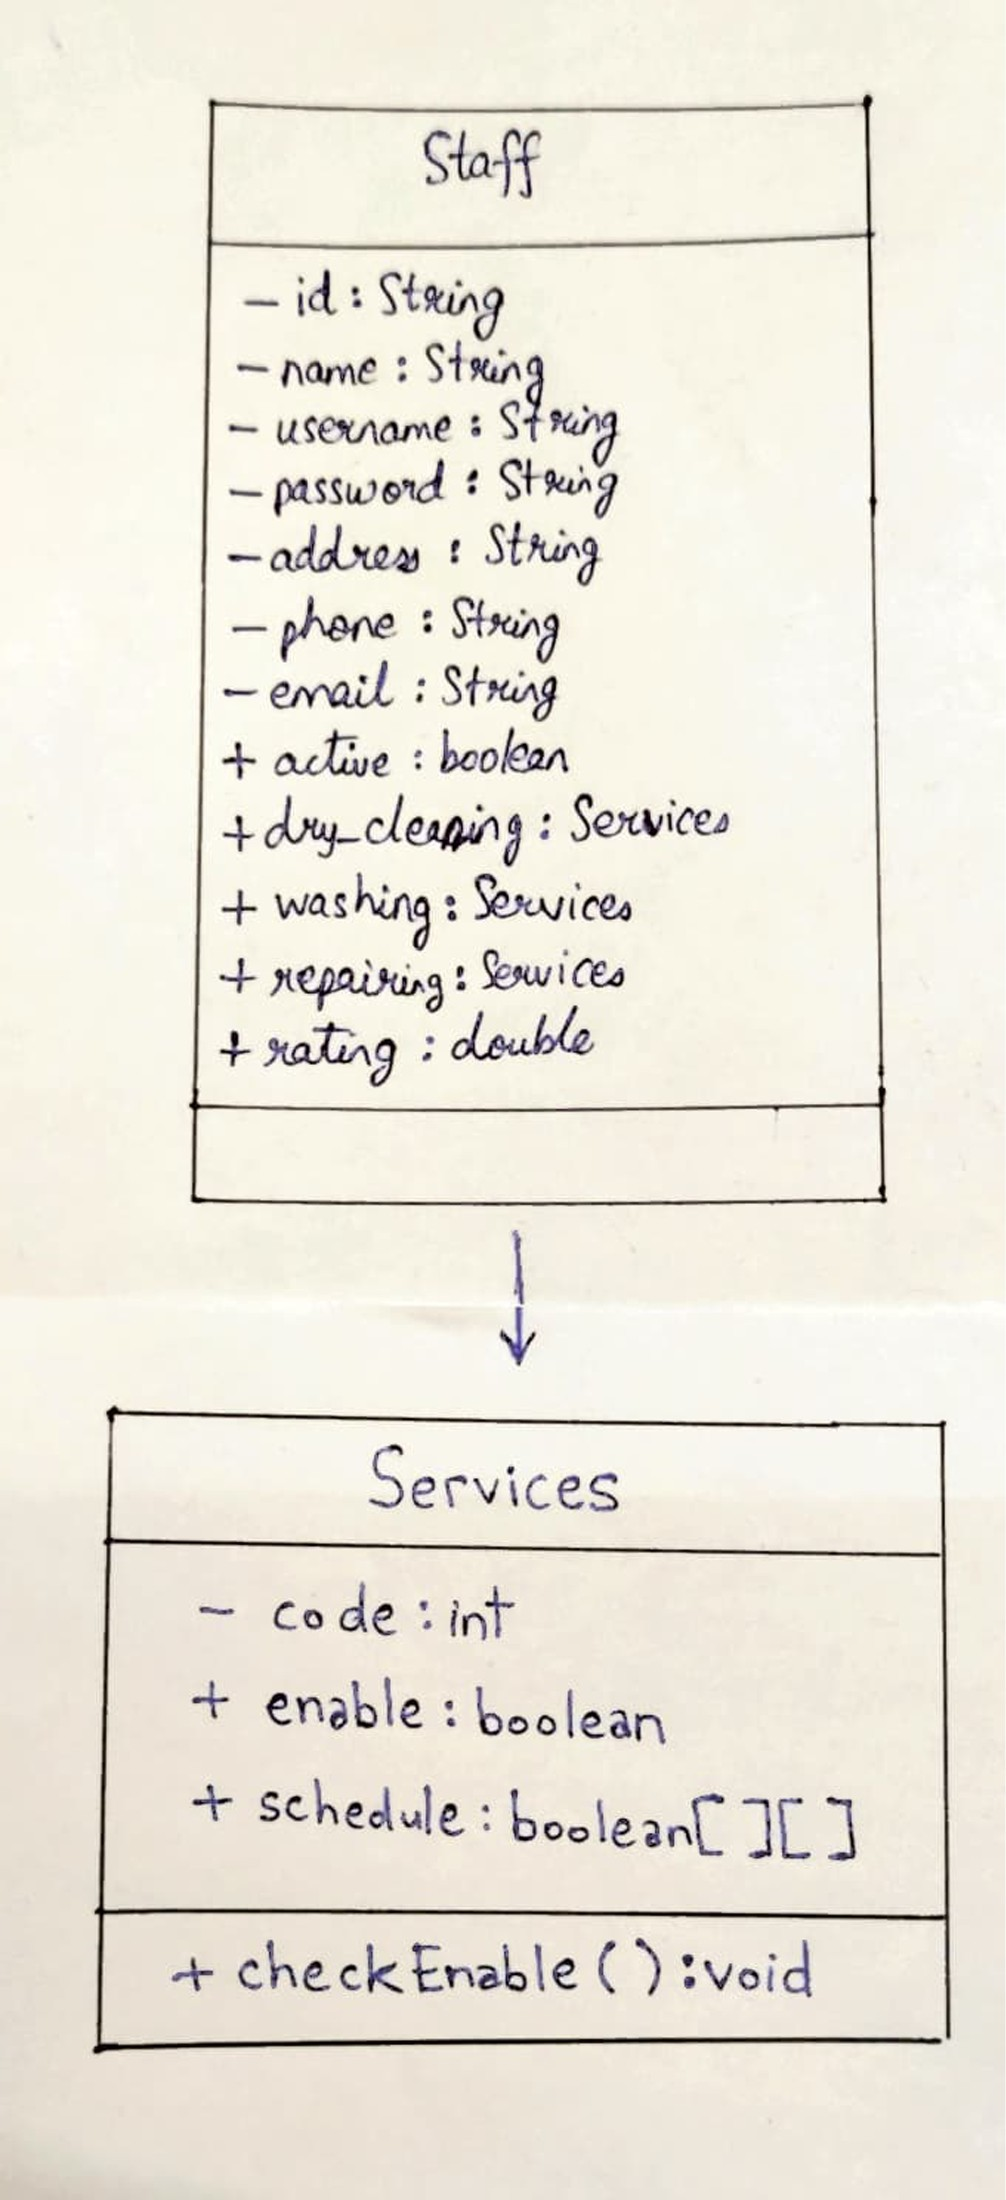 Staff
- id : String
- name : String
- username : String
- password : String
- address : String
- phone : String
- email : String
+ active : boolean
+ dry_cleaning : Services
+ washing : Services
+ repairing : Services
+ rating : double
Services
- code : int
+ enable : boolean
+ schedule : boolean[ ][ ]
+ checkEnable ( ) : void